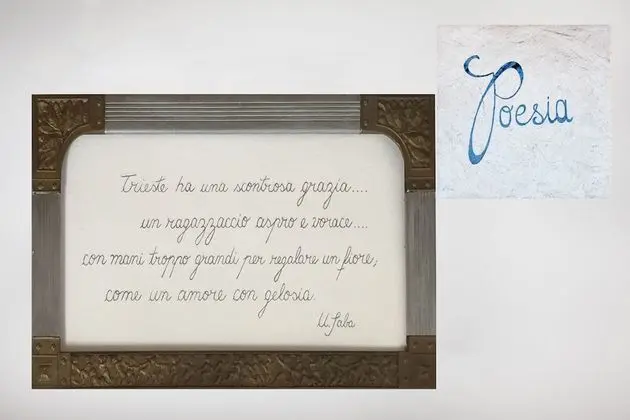 Poesia
Trieste ha una scontrosa grazia....
un ragazzaccio aspro e vorace....
con mani troppo grandi per regalare un fiore;
come un amore con gelosia.
U. Saba